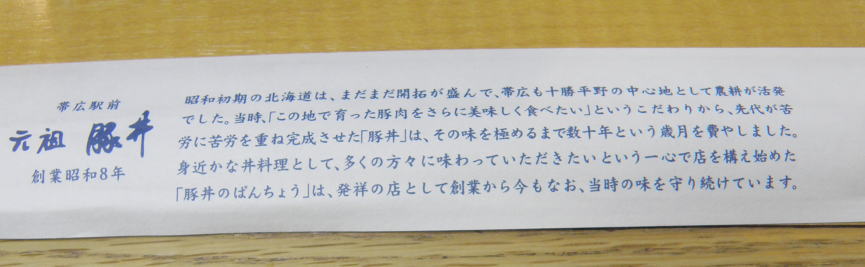 帯広駅前
元祖 豚丼
創業昭和8年
昭和初期の北海道は、まだまだ開拓が盛んで、帯広も十勝平野の中心地として農耕が活発
でした。当時、「この地で育った豚肉をさらに美味しく食べたい」というこだわりから、先代が苦
労に苦労を重ね完成させた「豚丼」は、その味を極めるまで数十年という歳月を費やしました。
身近かな丼料理として、多くの方々に味わっていただきたいという一心で店を構え始めた
「豚丼のぱんちょう」は、発祥の店として創業から今もなお、当時の味を守り続けています。